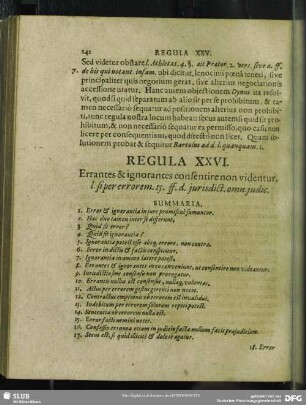 242 REGULA XXV.
Sed videtur obstare l. Athletas. 4. §. ait Prætor. 2. vers. sive a. ff.
7. de his qui notant. infam. ubi dicitur, lenocinii pœna teneri, sive
principaliter quis negotium gerat, sive alterius negotiationis
accessione utatur. Hanc autem objectionem Dynus ita resolvit,
quod si quid separatum ab alio sit per se prohibitum, & tamen
necessario sequatur ad actum principaliter permissum,
tunc regula nostra locum habeat: secus autem si quid
prohibitum, & non necessario sequatur ex permisso, quo casu non
licet per consequentias, quod directo non licet. Quam
solutionem probat & sequitur Bartolus ad d. l. quanquam. 1.
REGULA XXVI.
Errantes & ignorantes consentire non videntur.
l. si per errorem. 15. ff. d. jurisdict. omn. judic.
SUMMARIA.
1. Error & ignorantia in jure promiscuè sumuntur.
2. Hæc duo tamen inter se differunt.
3. Quid sit error?
4. Quid sit ignorantia?
5. Ignorantia potest esse absq; errore, non contra.
6. Error in dictis & factis consistit.
7. Ignorantia in animo latere potest.
8. Errantes & ignorantes in eo conveniunt, ut consentire non videantur.
9. Jurisdictio sine consensu non prorogatur.
10. Errantis nullus est consensus, nullaq; voluntas.
11. Actus per errorem gestus gerenti non nocet.
12. Contractus emptionis ob errorem est invalidus.
13. Indebitum per errorem solutum repeti potest.
14. Sententia ob errorem nulla est.
15. Error facti nemini nocet.
16. Confessio erronea etiam in judicio facta nullum facit præjudicium.
17. Secus est, si quid sciens & dolose agatur.
18. Error
SLUB
Wir führen Wissen.